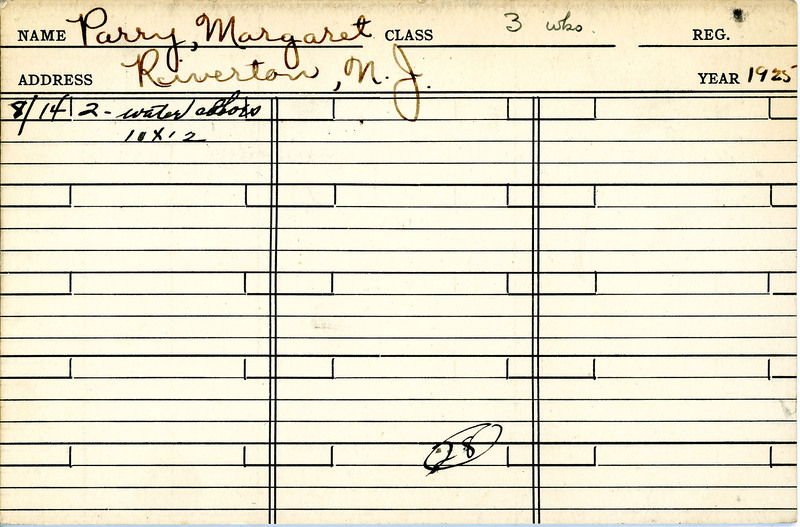 NAME Parry, Margaret CLASS 3 wks. REG.
ADDRESS Riverton, N. J. YEAR 1925
8/14 2 - water colors
10 x 12
28